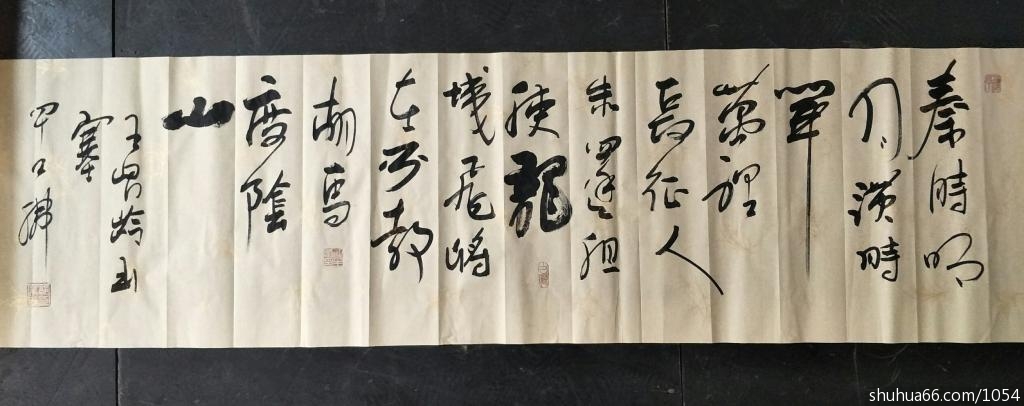 秦時明
月漢時
關
萬裡
長征人
未還但
使龍
城飛將
在不教
胡馬
度陰
山
王昌齡出
塞
shuhua66.com/1054